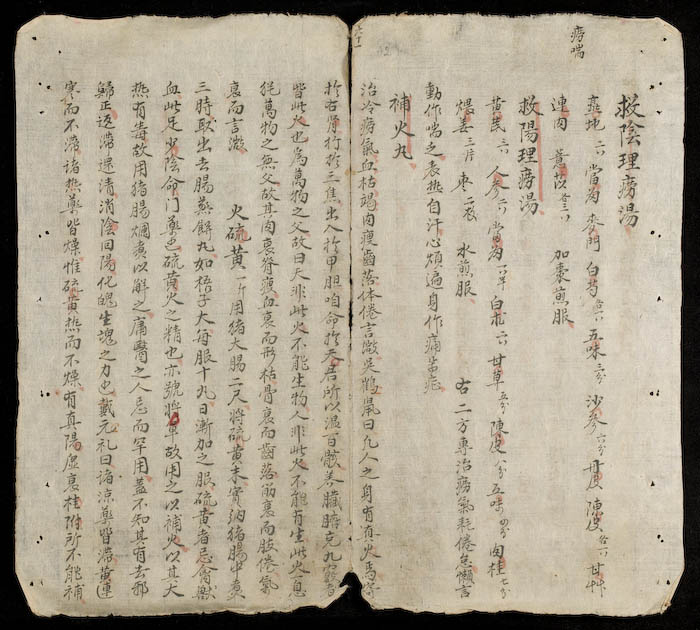 痨喘
救陰理痨湯
熟地 當歸 麥門 白芍 五味 三分 沙參 六分 丹皮 陳皮 甘艸
連肉 薏苡 加棗煎服
救陽理痨湯
黃芪 人參 當歸 白朮 甘草 五分 陳皮 八分 五味 四分 肉桂 七分
煨姜 三片 枣 二枚 水煎服 右二方專治痨氣耗倦怠懶言
動作喘乏表热自汗心煩遍身作痛等症
補火丸
治冷痨氣血枯竭肉瘦齒落体倦言微吴鶴皋曰凡人之身有真火焉寄
於右腎行於三焦出入於甲胆命於天君所以温百骸養臟腑充九竅者
皆此火也為萬物之父故曰天非此火不能生物人非此火不能有生此火一息
猶萬物之無父故其肉衰脊瘦血衰而形枯骨衰而齒落筋衰而肢倦氣
衰而言微 火硫黃 一斤用猪大腸二尺將硫黃末實納猪腸中煑
三時取出去腸蒸餅丸如梧子大每服十丸日漸加之服硫黃者忌食獸
血此足少陰命门藥也硫黃火之精也亦號將軍故用之以補火以其大
热有毒故用猪腸爛煑以解之庸醫之人忌而罕用蓋不知其有去邪
歸正返滯還清消陰回陽化魄生魂之力也戴元礼曰諸凉藥皆滯黃連
寒而不滯諸热藥皆燥惟硫黃热而不燥有真陽虛衰桂附所不能補